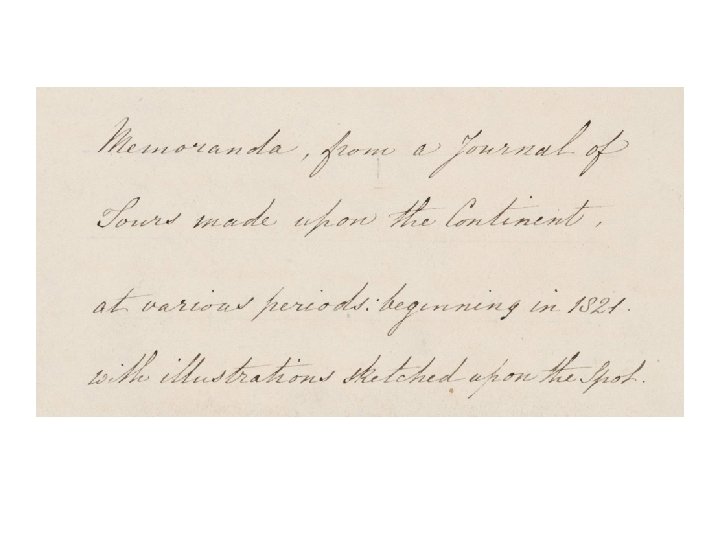 Memoranda, from a Journal of
Tours made upon the Continent,
at various periods: beginning in 1821.
with illustrations sketched upon the Spot.